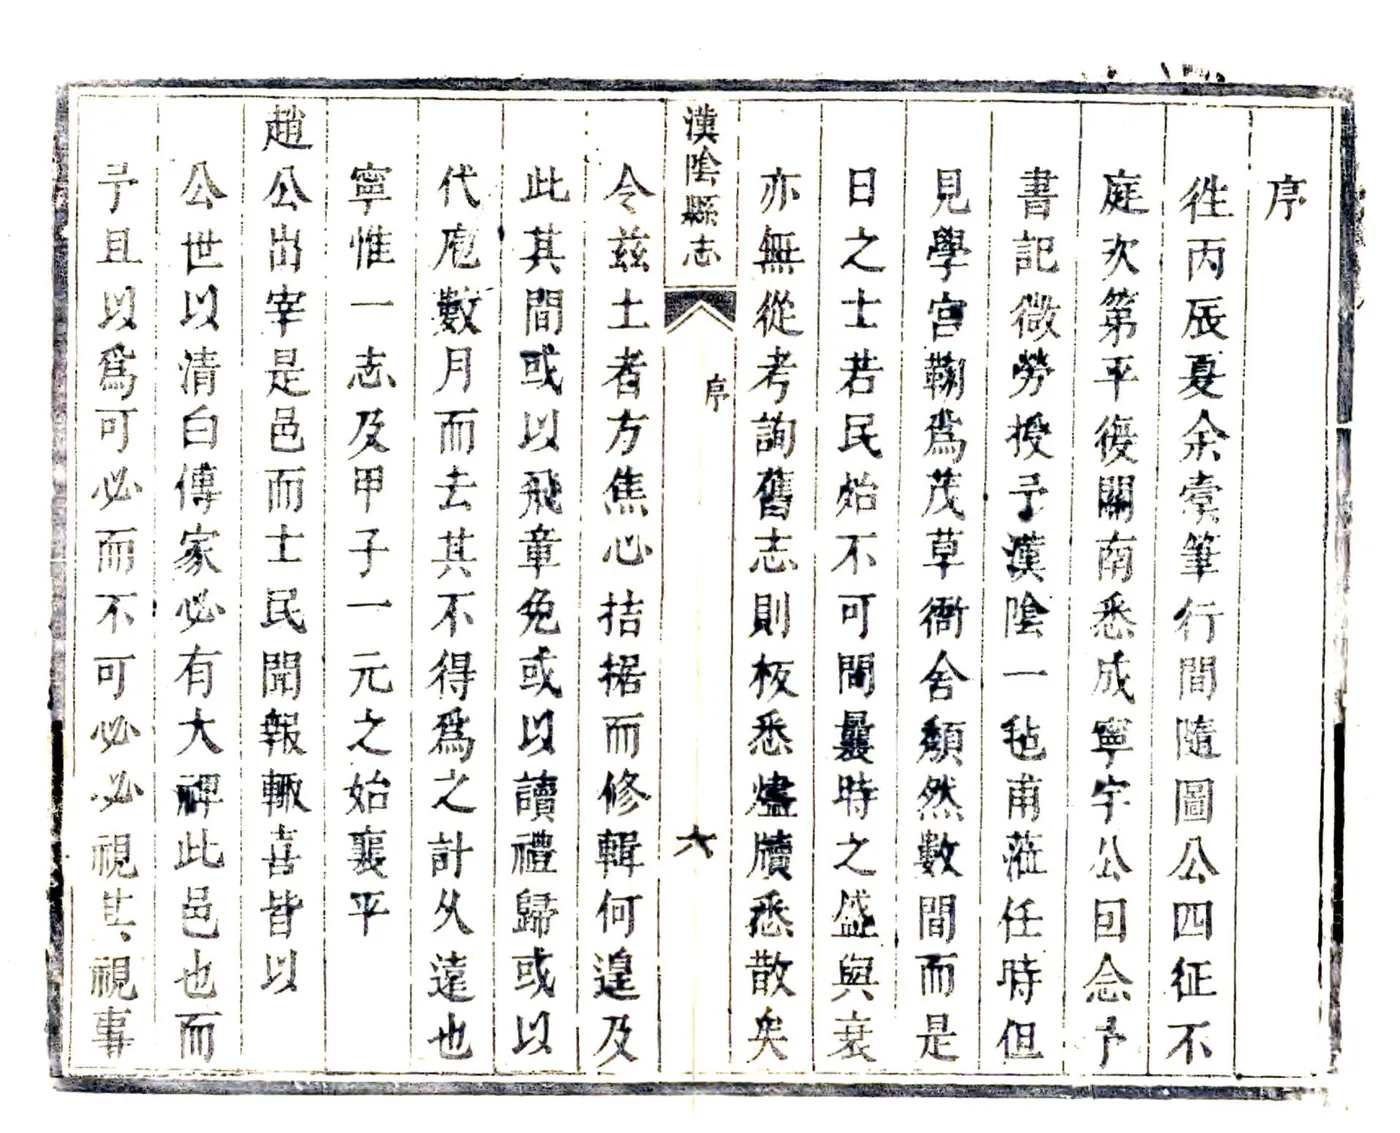 序
徃丙辰夏余橐筆行間隨圖公四征不
庭次第平復關南悉成寧宇公囙念予
書記微勞授予漢陰一毡甫蒞任時但
見學宮鞠為茂草衙舍頹然數間而是
日之士若民殆不可問曩時之盛與衰
亦無從考詢舊志則板悉燼牘悉散矣
漢陰縣志
序
六
令茲土者方焦心拮据而修輯何遑及
此其間或以飛章免或以讀禮歸或以
代庖數月而去其不得為之計久遠也
寧惟一志及甲子一元之始襄平
趙公出宰是邑而士民聞報輙喜皆以
公世以清白傳家必有大裨此邑也而
予且以為可必而不可必必視其視事